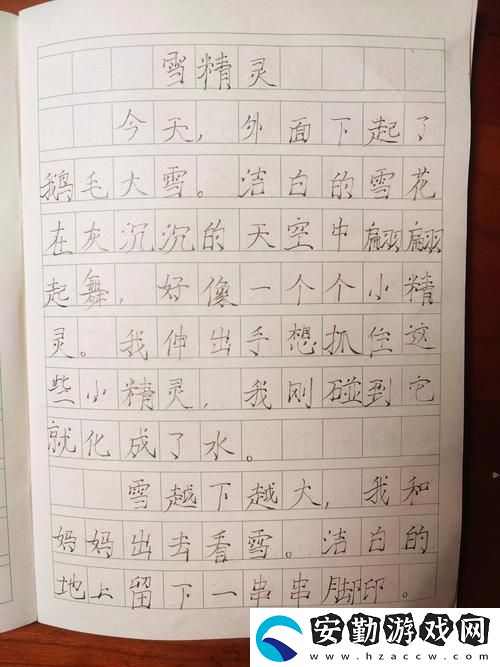 雪精灵
今天，外面下起了
鹅毛大雪。洁白的雪花
在灰沉沉的天空中翩翩
起舞，好像一个个小精
灵。我伸出手想抓住这
些小精灵，我刚碰到它
就化成了水。
雪越下越大，我和
妈妈出去看雪。洁白的
地上留下一串串脚印。
安勤游戏网
www.hzaccw.com